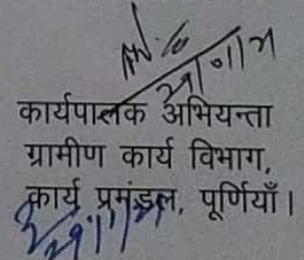 कार्यपालक अभियन्ता
ग्रामीण कार्य विभाग,
कार्य प्रमंडल, पूर्णियाँ।